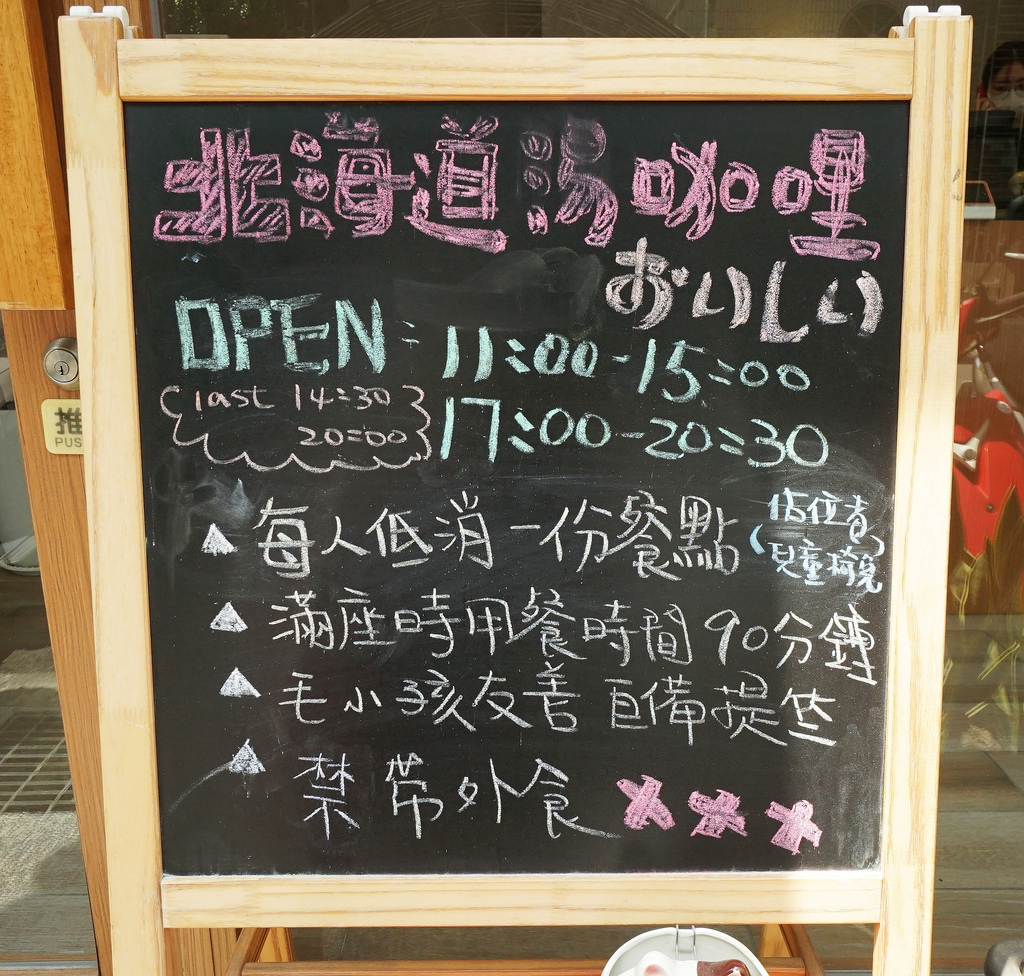 北海道湯咖哩
おいしい
OPEN: 11:00-15:00
17:00-20:30
last 14:30
20:00
▲每人低消一份餐點
(佔位者
兒童椅免)
▲滿座時用餐時間90分鐘
▲毛小孩友善 自備提
▲禁帶外食 XXX
推
PUS